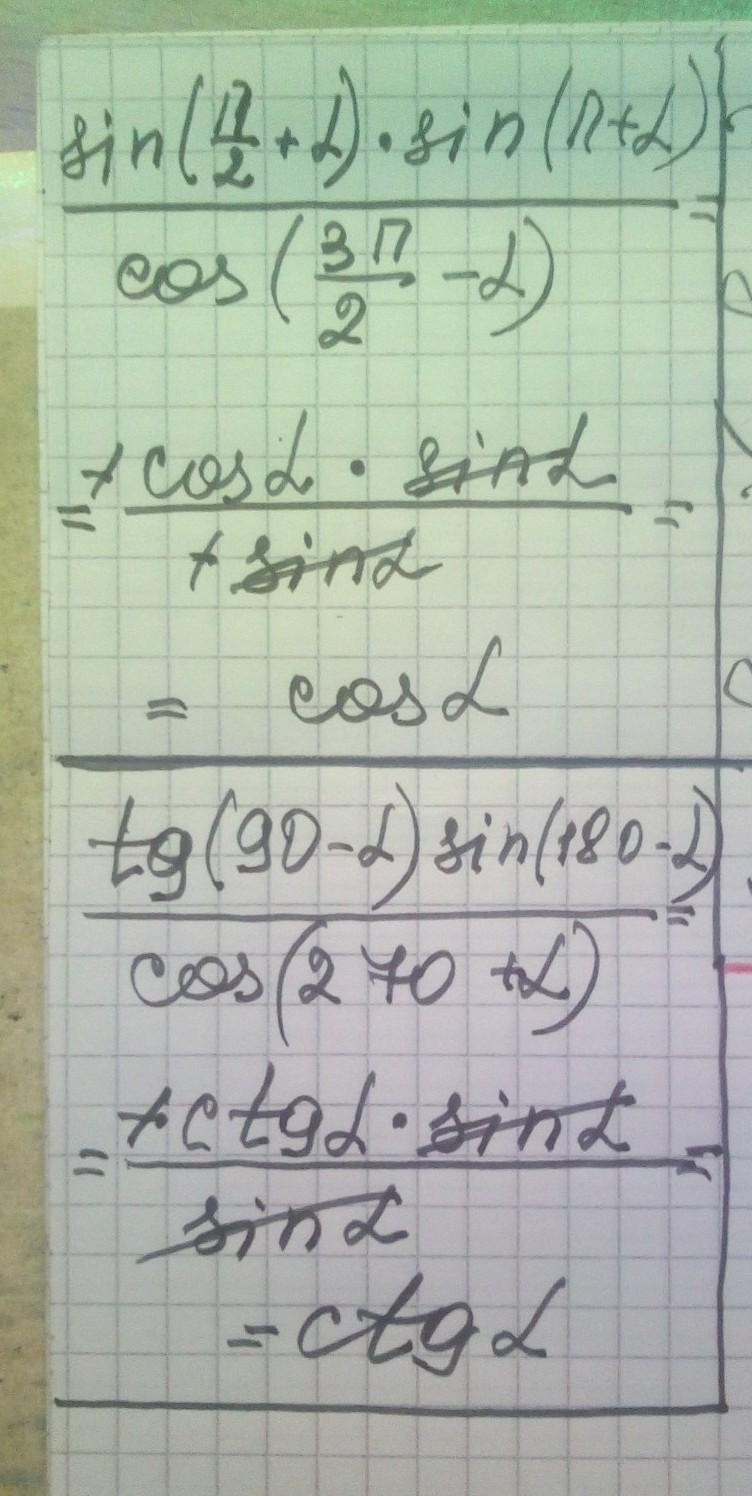 sin(π/2 + α) · sin(π+α) =
cos(3π/2 - α)
= + cosα · sinα =
+ sinα
= cosα
tg(90-α) sin(180-α) =
cos(270 + α)
= + ctgα · sinα =
sinα
= ctgα